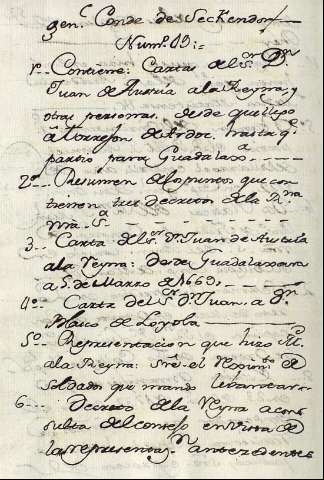 gen.l Conde de Seckendorf
Num.o 19.
1o Contiene: Cartas del S.or D.n
Juan de Austria a la Reyna, y
otras personas, desde que llego
a Torrejon de Ardoz, hasta q.e
partio para Guadalax.a
2o Resumen de los puntos que con
tienen tres decretos de la Rna
nra. S.a
3 Carta del S.or D.n Juan de Austria
a la Reyna: desde Guadalaxara
a 5 de Marzo de 1669.
4o Carta del S.or D.n Juan, a D.n
Blasco de Loyola
5o Representacion que hizo
a la Reyna: sre. el Regim.to de
soldados que mando levantar
6 Decreto de la Reyna a con
sulta del consejo en vista de
las representaz.n antecedentes